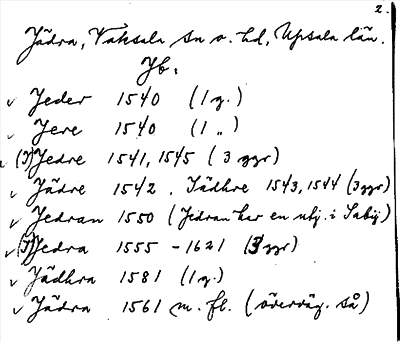 2.
Jädra, Vaksala sn o. hd, Upsala län.
Jb:
✓ Jeder 1540 (1 g.)
✓ Jere 1540 (1 „)
✓ (I)Jedre 1541, 1545 (3 ggr)
✓ Jädre 1542. Jädhre 1543, 1544 (3 ggr)
✓ Jedran 1550 (Jedran har en utj. i Säby)
✓ (I)Jedra 1555 - 1621 (3 ggr)
✓ Jädhra 1581 (1 g.)
✓ Jädra 1561 m. fl. (överväg. så)